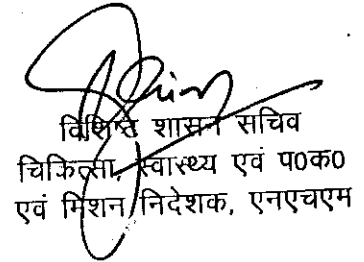 विशिष्ट शासन सचिव
चिकित्सा, स्वास्थ्य एवं प०क०
एवं मिशन निदेशक, एनएचएम